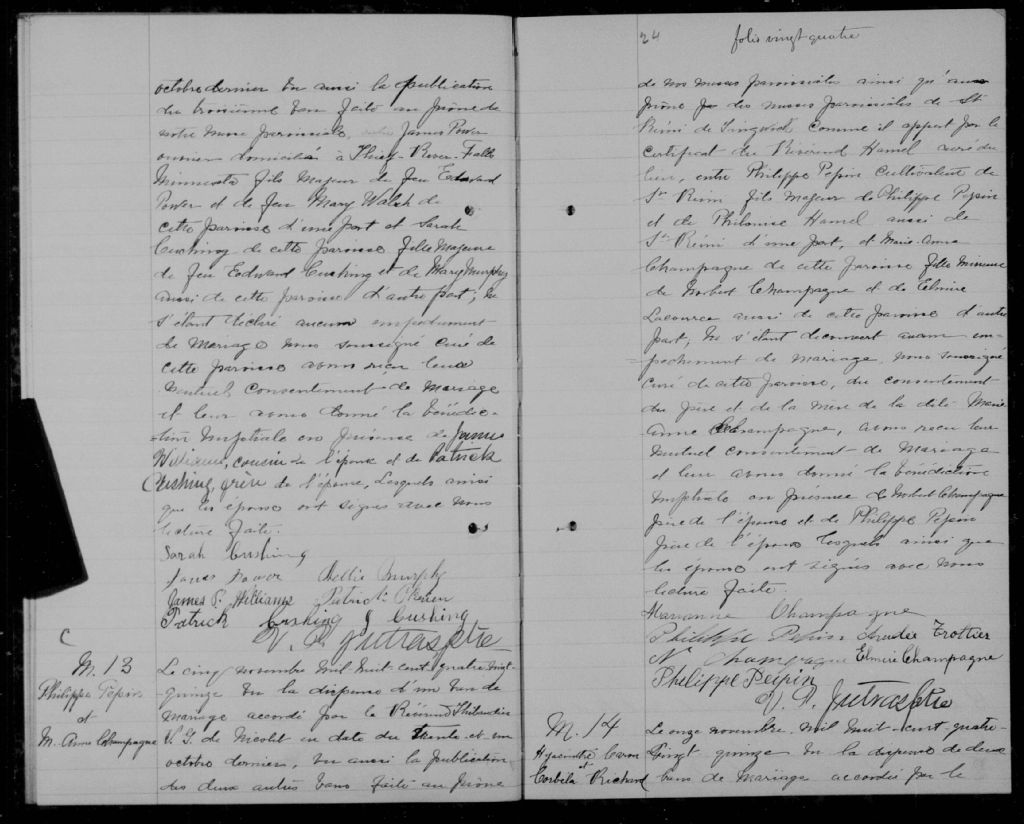 octobre dernier vu aussi la publication
du troisième ban faite au prône de
notre messe paroissiale, entre James Power
ouvrier domicilié à Thief-River-Falls
Minnesota fils majeur de feu Edward
Power et de feu Mary Walsh de
cette paroisse d'une part et Sarah
Cushing de cette paroisse fille majeure
de feu Edward Cushing et de Mary Murphy
aussi de cette paroisse d'autre part; ne
s'étant déclaré aucun empêchement
de mariage nous soussigné curé de
cette paroisse avons reçu leur
mutuel consentement de mariage
et leur avons donné la bénédic-
-tion nuptiale en présence de James
Williams, cousin de l'époux et de Patrick
Cushing frère de l'épouse, lesquels ainsi
que les époux ont signés avec nous
lecture faite.
Sarah Cushing
James Power Nellie Murphy
James P. Williams Patrick O'Brien
Patrick Cushing J Cushing
V. P. Jutras Ptre
C
M. 13
Philippe Pepin
et
M. Anne Champagne
Le cinq novembre mil huit cent quatre vingt-
quinze vu la dispense d'un ban de
mariage accordé par le Révérend Thibaudier
V. G. de Nicolet en date du trente et un
octobre dernier, vu aussi la publication
des deux autres bans faite au prône
24 folio vingt quatre
de nos messes paroissiales ainsi qu'au
prône des messes paroissiales de St
Rémi de Tingwick comme il appert par le
certificat du Révérend Hamel curé du
lieu, entre Philippe Pepin cultivateur de
St Rémi fils majeur de Philippe Pepin
et de Philomise Hamel aussi de
St Rémi d'une part, et Marie-Anne
Champagne de cette paroisse fille mineure
de Norbert Champagne et de Elmire
Lacource aussi de cette paroisse d'autre
part; ne s'étant découvert aucun em-
-pechement de mariage, nous soussigné
curé de cette paroisse, du consentement
du père et de la mère de la dite Marie
Anne Champagne, avons reçu leur
mutuel consentement de mariage
et leur avons donné la bénédiction
nuptiale en présence de Norbert Champagne
père de l'épouse et de Philippe Pepin
père de l'époux lesquels ainsi que
les époux ont signés avec nous
lecture faite.
Marianne Champagne
Philippe Pepin Trottier
N Champagne Elmire Champagne
Phelippe Peipin
V. P. Jutras Ptre
M. 14
Hyacinthe Caron
et
Corbela Richard
Le onze novembre mil huit-cent quatre-
vingt quinze vu la dispense de deux
bans de mariage accordée par le